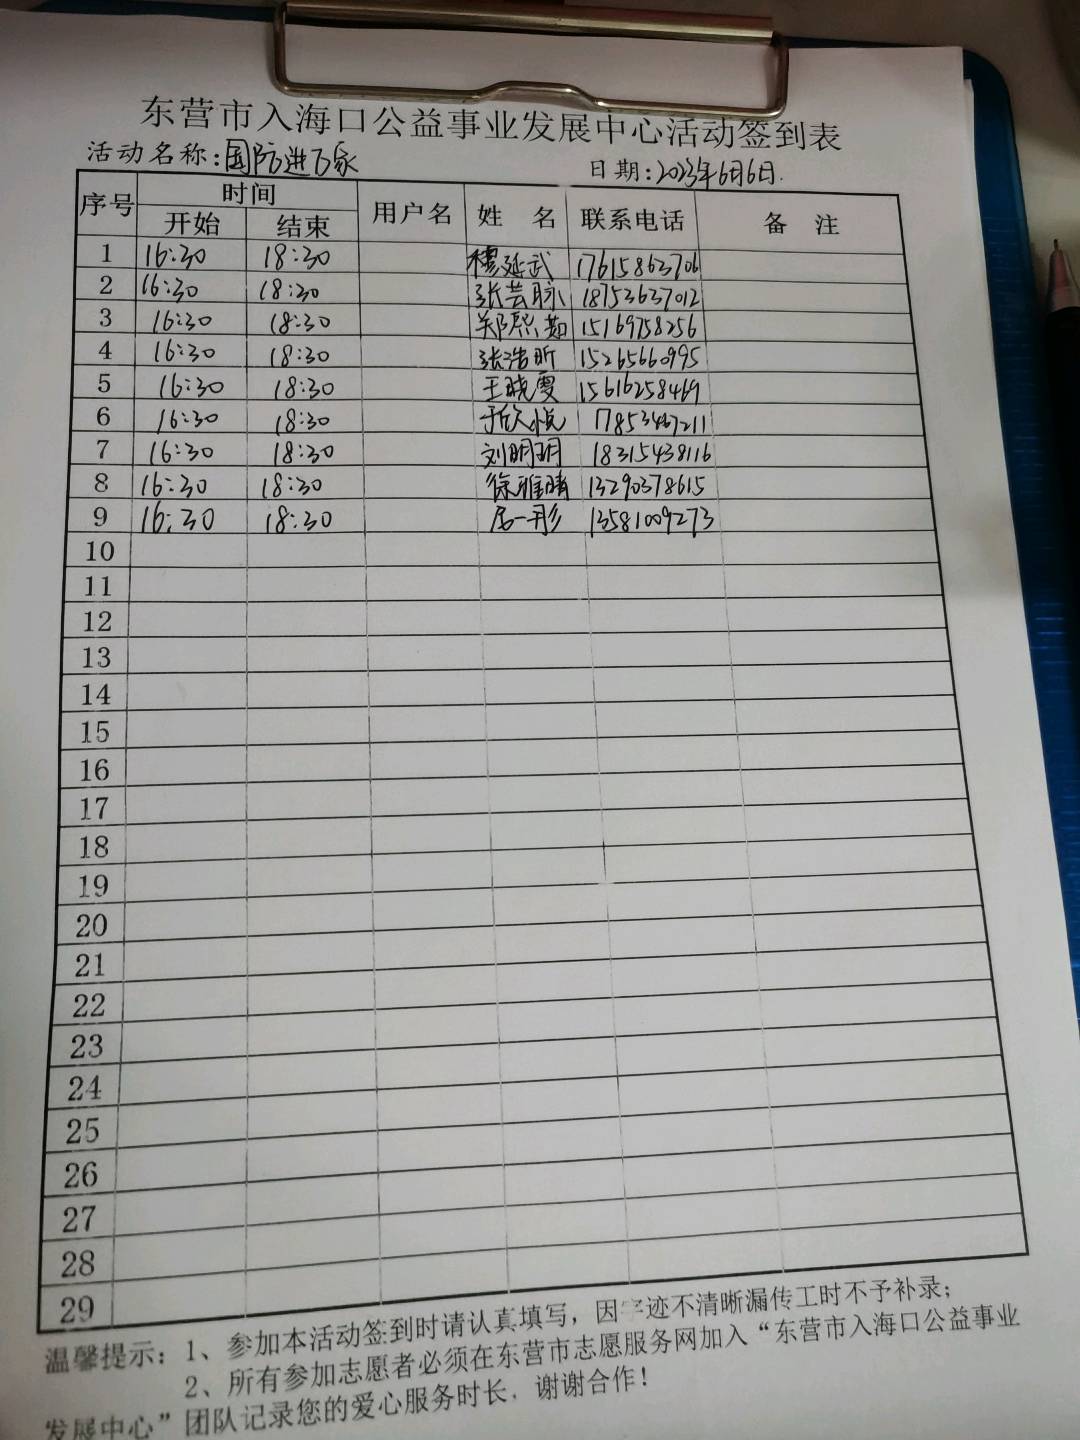 东营市入海口公益事业发展中心活动签到表
活动名称:国防进万家 日期:2023年6月6日.
序号 时间 用户名 姓 名 联系电话 备 注
开始 结束
1 16:30 18:30 穆延武 17615863706
2 16:30 18:30 张芸脉 18753637012
3 16:30 18:30 郑熙茹 15169758256
4 16:30 18:30 张浩昕 15265660995
5 16:30 18:30 王晓雯 15616258469
6 16:30 18:30 于欣悦 17853467211
7 16:30 18:30 刘明玥 18315438116
8 16:30 18:30 徐雅晴 13290378615
9 16:30 18:30 一彤 13581009273
10
11
12
13
14
15
16
17
18
19
20
21
22
23
24
25
26
27
28
29
温馨提示:1、参加本活动签到时请认真填写,因字迹不清晰漏传工时不予补录;
2、所有参加志愿者必须在东营市志愿服务网加入“东营市入海口公益事业
发展中心”团队记录您的爱心服务时长,谢谢合作!